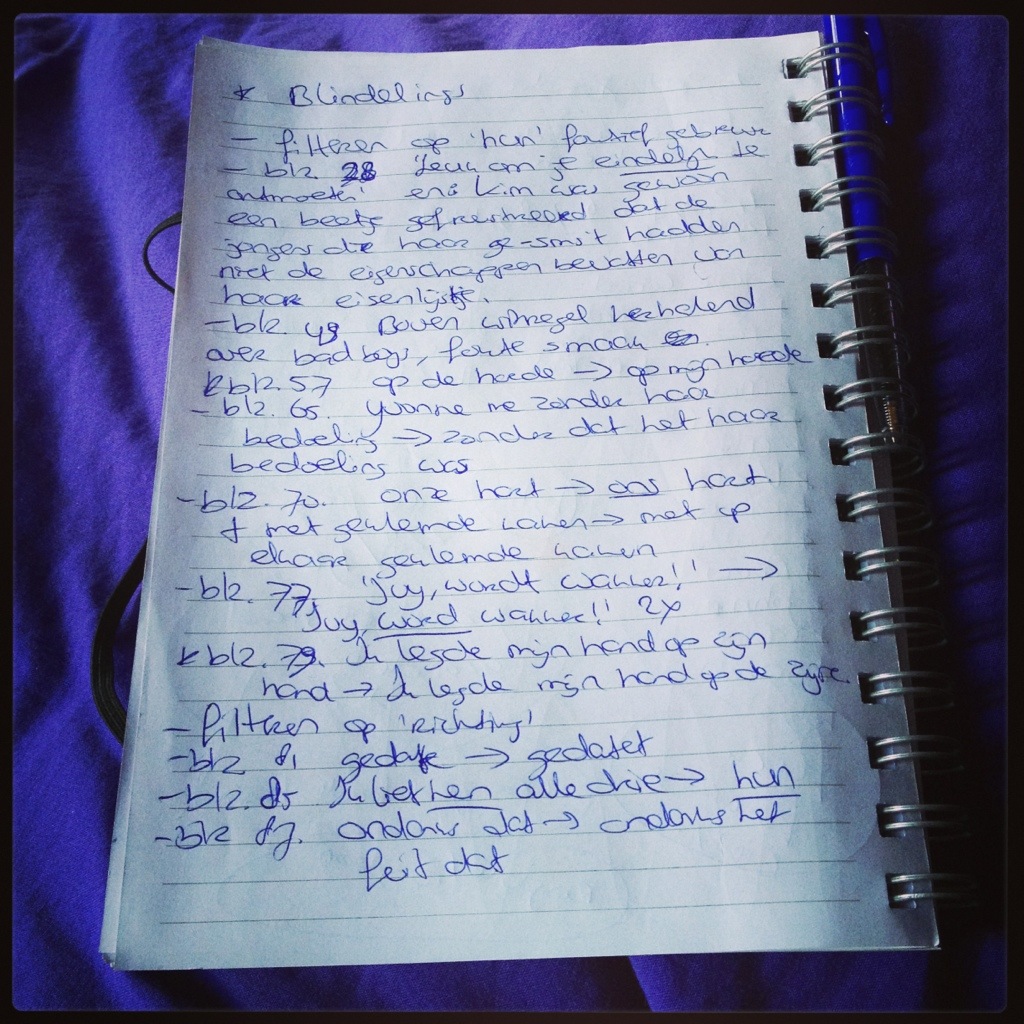 * Blindelings
- filteren op 'hun' foutief gebruik
- blz. 28 'Leuk om je eindelijk te
ontmoeten' en: Kim was gewoon
een beetje gefrustreerd dat de
jongens die haar ge-sms't hadden
niet de eigenschappen bevatten van
haar eisenlijstje.
- blz. 49 Boven witregel herhalend
over bad boys, foute smaak
blz. 57 op de hoede → op mijn hoede
- blz. 65. Yvonne me zonder haar
bedoeling → zonder dat het haar
bedoeling was
- blz. 70. onze hart → ons hart.
+ met geklemde kaken → met op
elkaar geklemde kaken
- blz. 77. 'Juy, wordt wakker!' →
'Juy, word wakker!' 2x
blz. 79. Ik legde mijn hand op zijn
hand → Ik legde mijn hand op de zijne.
- filteren op 'richting'
- blz 81 gedate → gedatet
- blz. 85 Ik liet hen alledrie → hun
- blz 87. ondanks dat → ondanks het
feit dat